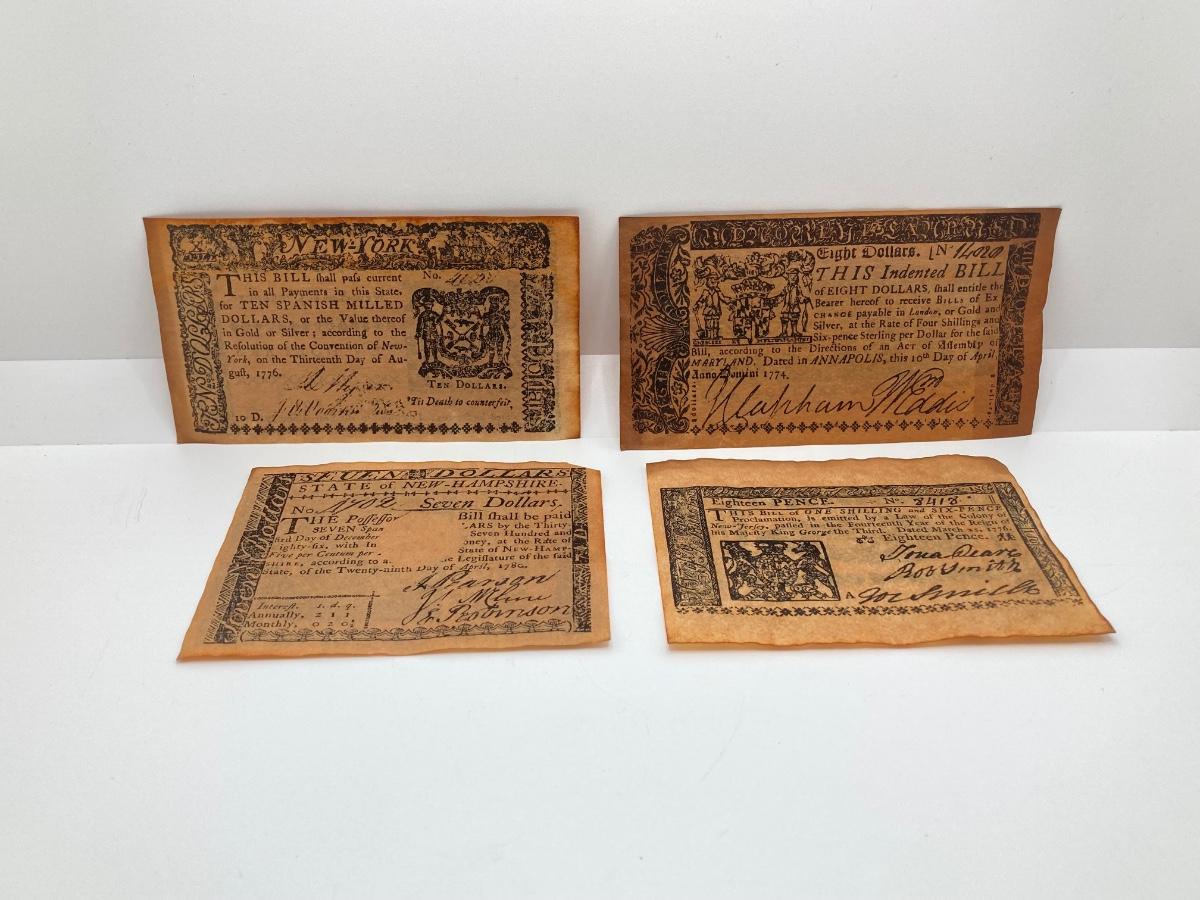 NEW-YORK
THIS BILL ſhall paſs current No.
in all Payments in this State,
for TEN SPANISH MILLED
DOLLARS, or the Value thereof
in Gold or Silver; according to the
Reſolution of the Convention of New-
York, on the Thirteenth Day of Au-
guſt, 1776.
TEN DOLLARS.
'Tis Death to counterfeit.
10 D.
Eight Dollars. [N° 14020
THIS Indented BILL
of EIGHT DOLLARS, ſhall entitle the
Bearer hereof to receive BILLS of EX-
CHANGE payable in London, or Gold and
Silver, at the Rate of Four Shillings and
Six-pence Sterling per Dollar for the ſaid
Bill, according to the Directions of an Act of Aſſembly of
MARYLAND. Dated in ANNAPOLIS, this 10th Day of April,
Anno Domini 1774.
J Clapham W Eddis
SEVEN DOLLARS
STATE of NEW-HAMPSHIRE.
No Seven Dollars.
THE Poſſeſſor Bill ſhall be paid
SEVEN Span ARS by the Thirty-
firſt Day of December Seven Hundred and
Eighty-ſix, with In oney, at the Rate of
Five per Centum per State of NEW-HAMP-
SHIRE, according to a e Legiſlature of the ſaid
State, of the Twenty-ninth Day of April, 1780.
J Pearson
J McClure
J Robinson
Intereſt. s. d. q.
Annually, 2 1 1
Monthly, 0 2 0½
Eighteen PENCE. No. 8418.
THIS BILL of ONE SHILLING and SIX-PENCE
Proclamation, is emitted by a Law of the Colony of
New-Jerſey, paſſed in the Fourteenth Year of the Reign of
his Majeſty King George the Third. Dated March 25, 1776.
Eighteen Pence.
Jona Deare
Rob Smith
A Jos Smith